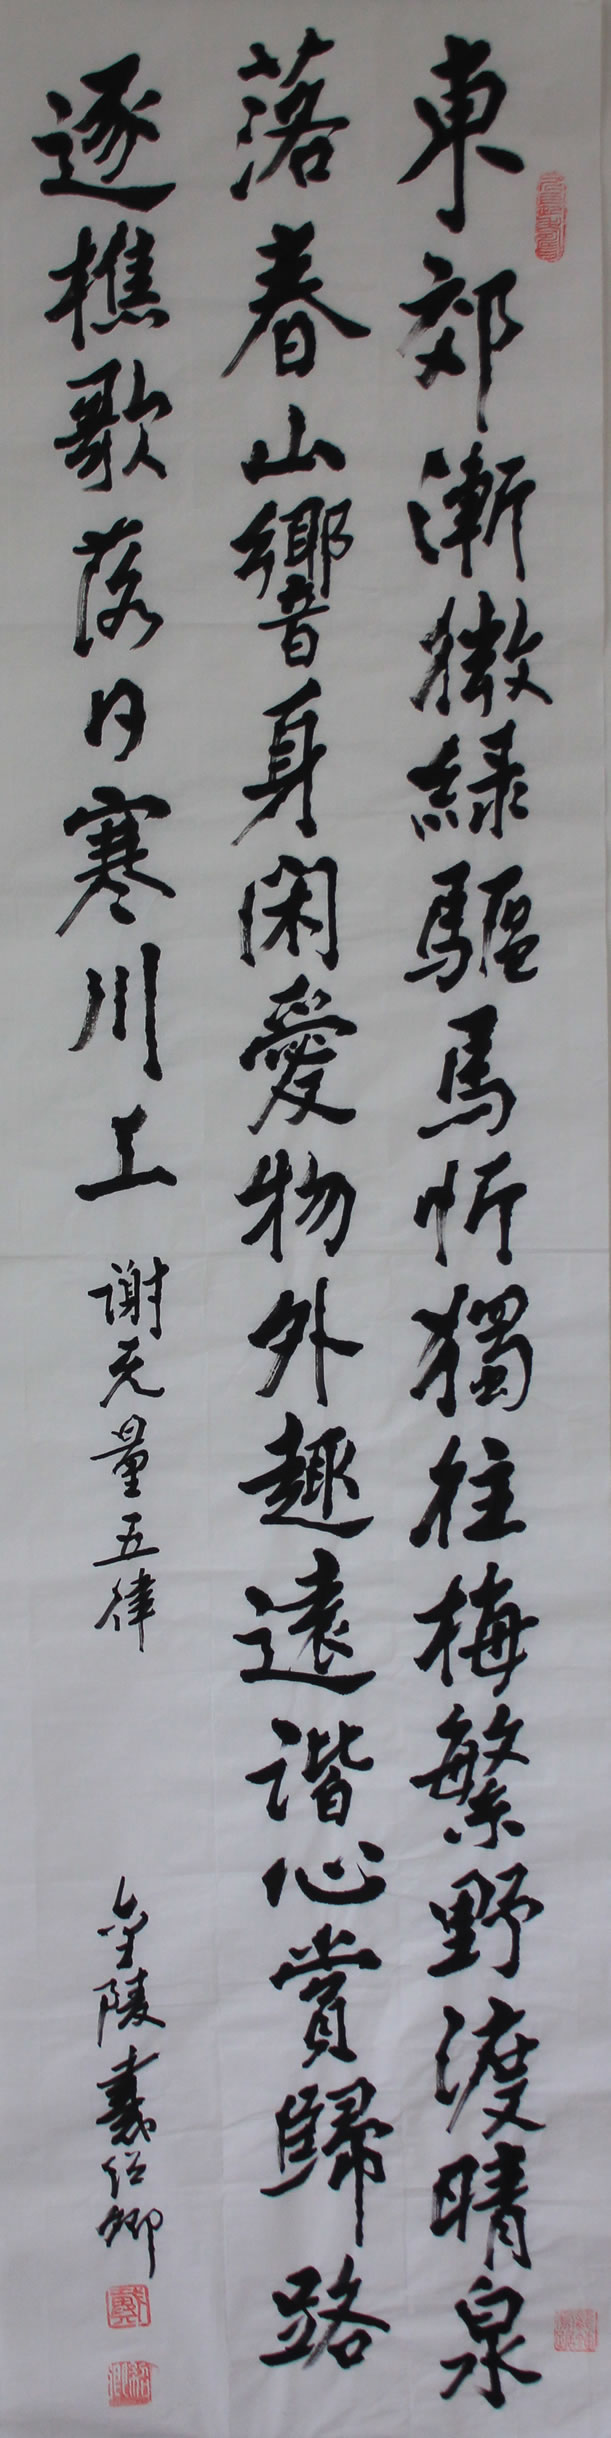 東郊漸微綠驅馬忻獨往梅繁野渡晴泉
落春山響身閑愛物外趣遠諧心賞歸路
逐樵歌落日寒川上
谢无量五律
金陵戴绍卿